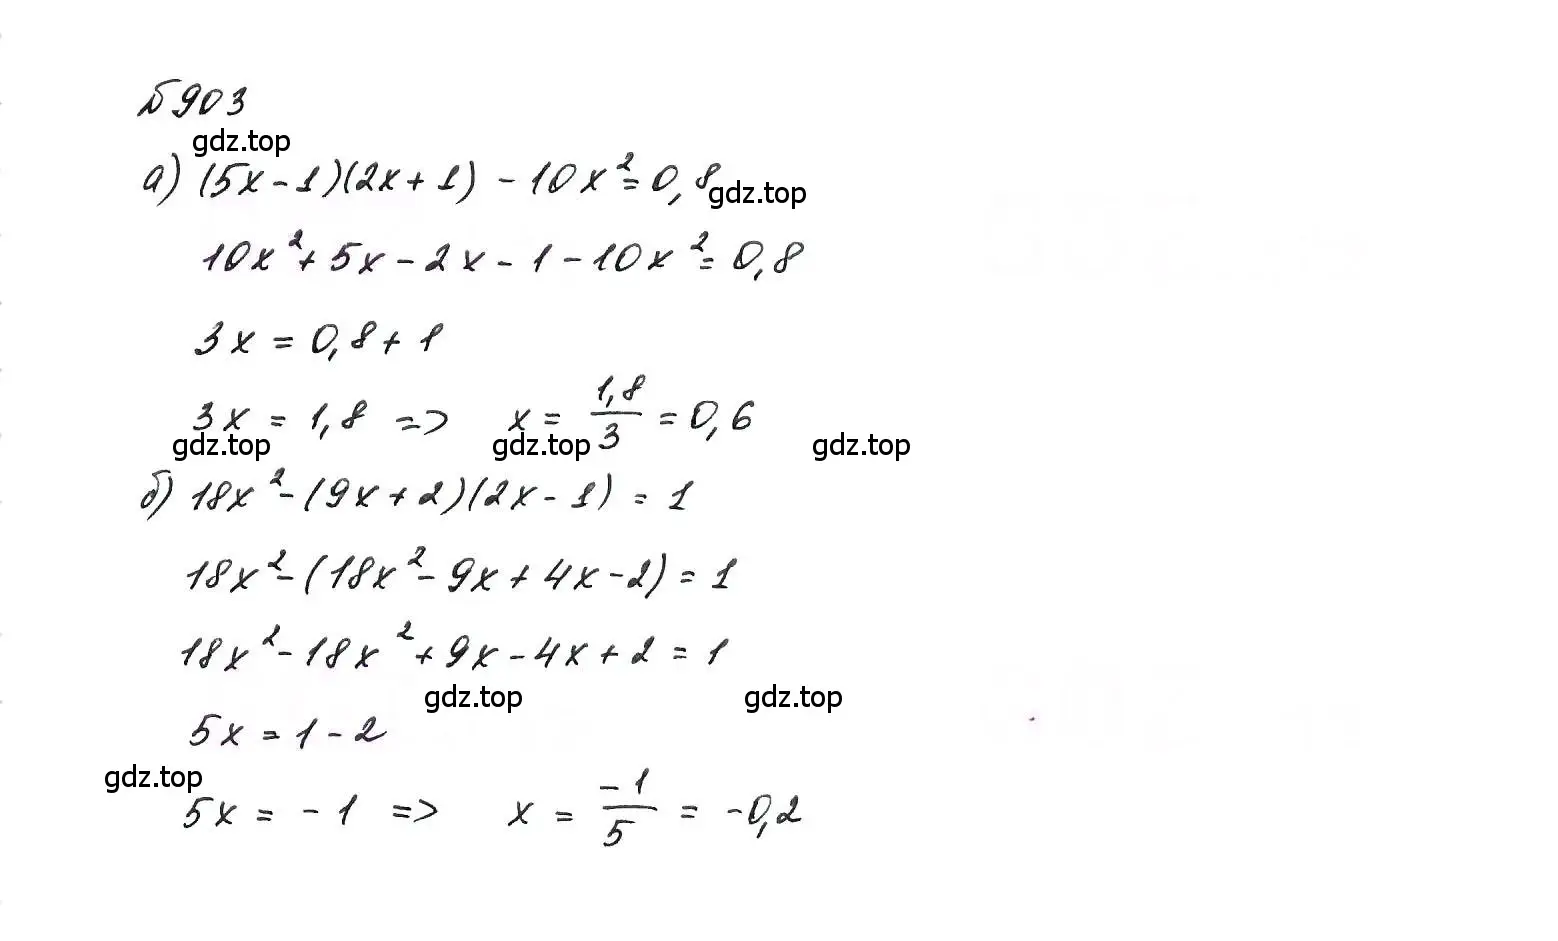 №903
gdz.top
а) (5x - 1)(2x + 1) - 10x² = 0,8
gdz.top
10x² + 5x - 2x - 1 - 10x² = 0,8
3x = 0,8 + 1
3x = 1,8 => x = 1,8/3 = 0,6
gdz.top gdz.top gdz.top
б) 18x² - (9x + 2)(2x - 1) = 1
18x² - (18x² - 9x + 4x - 2) = 1
18x² - 18x² + 9x - 4x + 2 = 1
gdz.top gdz.top
5x = 1 - 2
gdz.top
5x = - 1 => x = -1/5 = -0,2